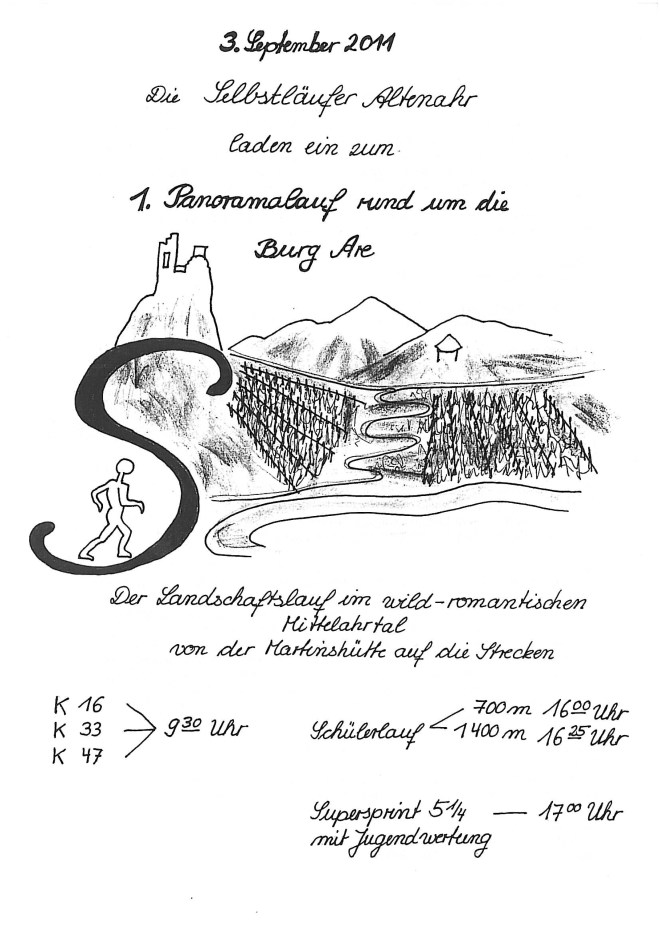 3. September 2011
Die Selbstläufer Altenahr
laden ein zum
1. Panoramalauf rund um die
Burg Are
S
Der Landschaftslauf im wild-romantischen
Mittelahrtal
von der Martinshütte auf die Strecken
K 16
K 33
K 47
9 30 Uhr
Schülerlauf
700 m 16 00 Uhr
1400 m 16 25 Uhr
Supersprint 5 1/4 — 17 00 Uhr
mit Jugendwertung